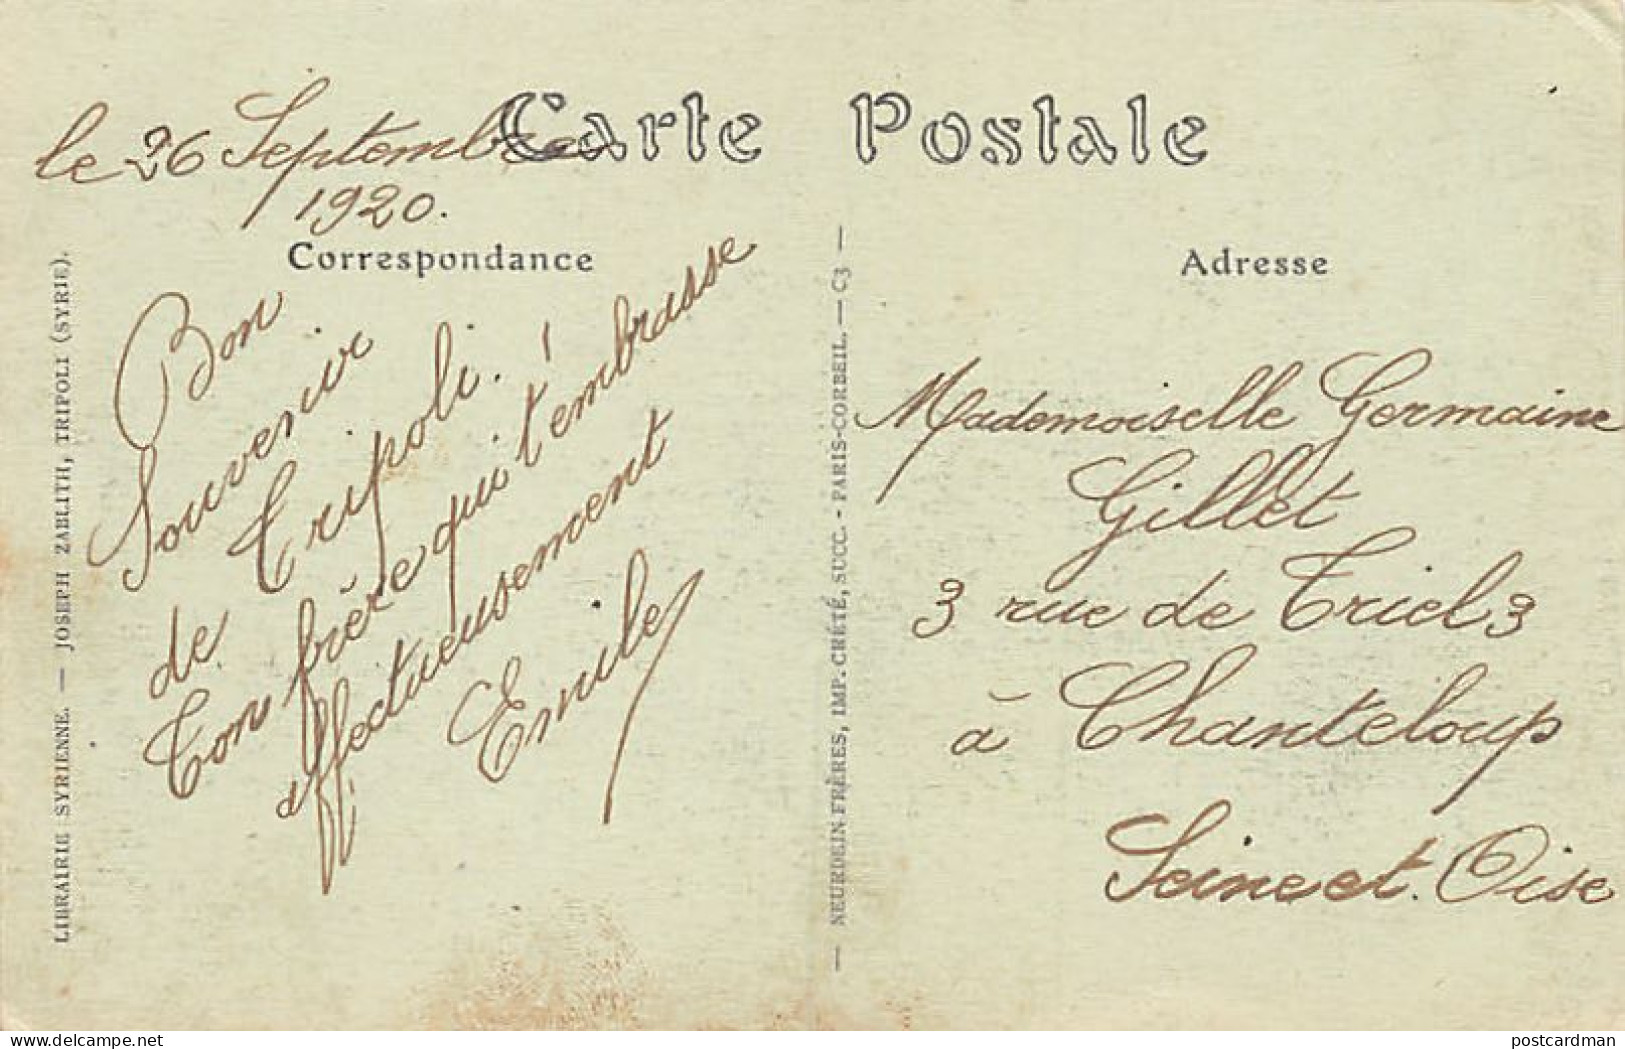 Carte Postale
le 26 Septembre
1920.
Correspondance
Bon
Souvenir
de Tripoli.
Ton frère qui t'embrasse
affectueusement
Emile
LIBRAIRIE SYRIENNE. — JOSEPH ZABLITH, TRIPOLI (SYRIE).
— NEURDEIN FRÈRES, IMP. CRÉTÉ, SUCC. - PARIS-CORBEIL. — C3 —
Adresse
Mademoiselle Germaine
Gillet
3 rue de Triel 3
à Chanteloup
Seine et. Oise
delcampe.net
postcardman